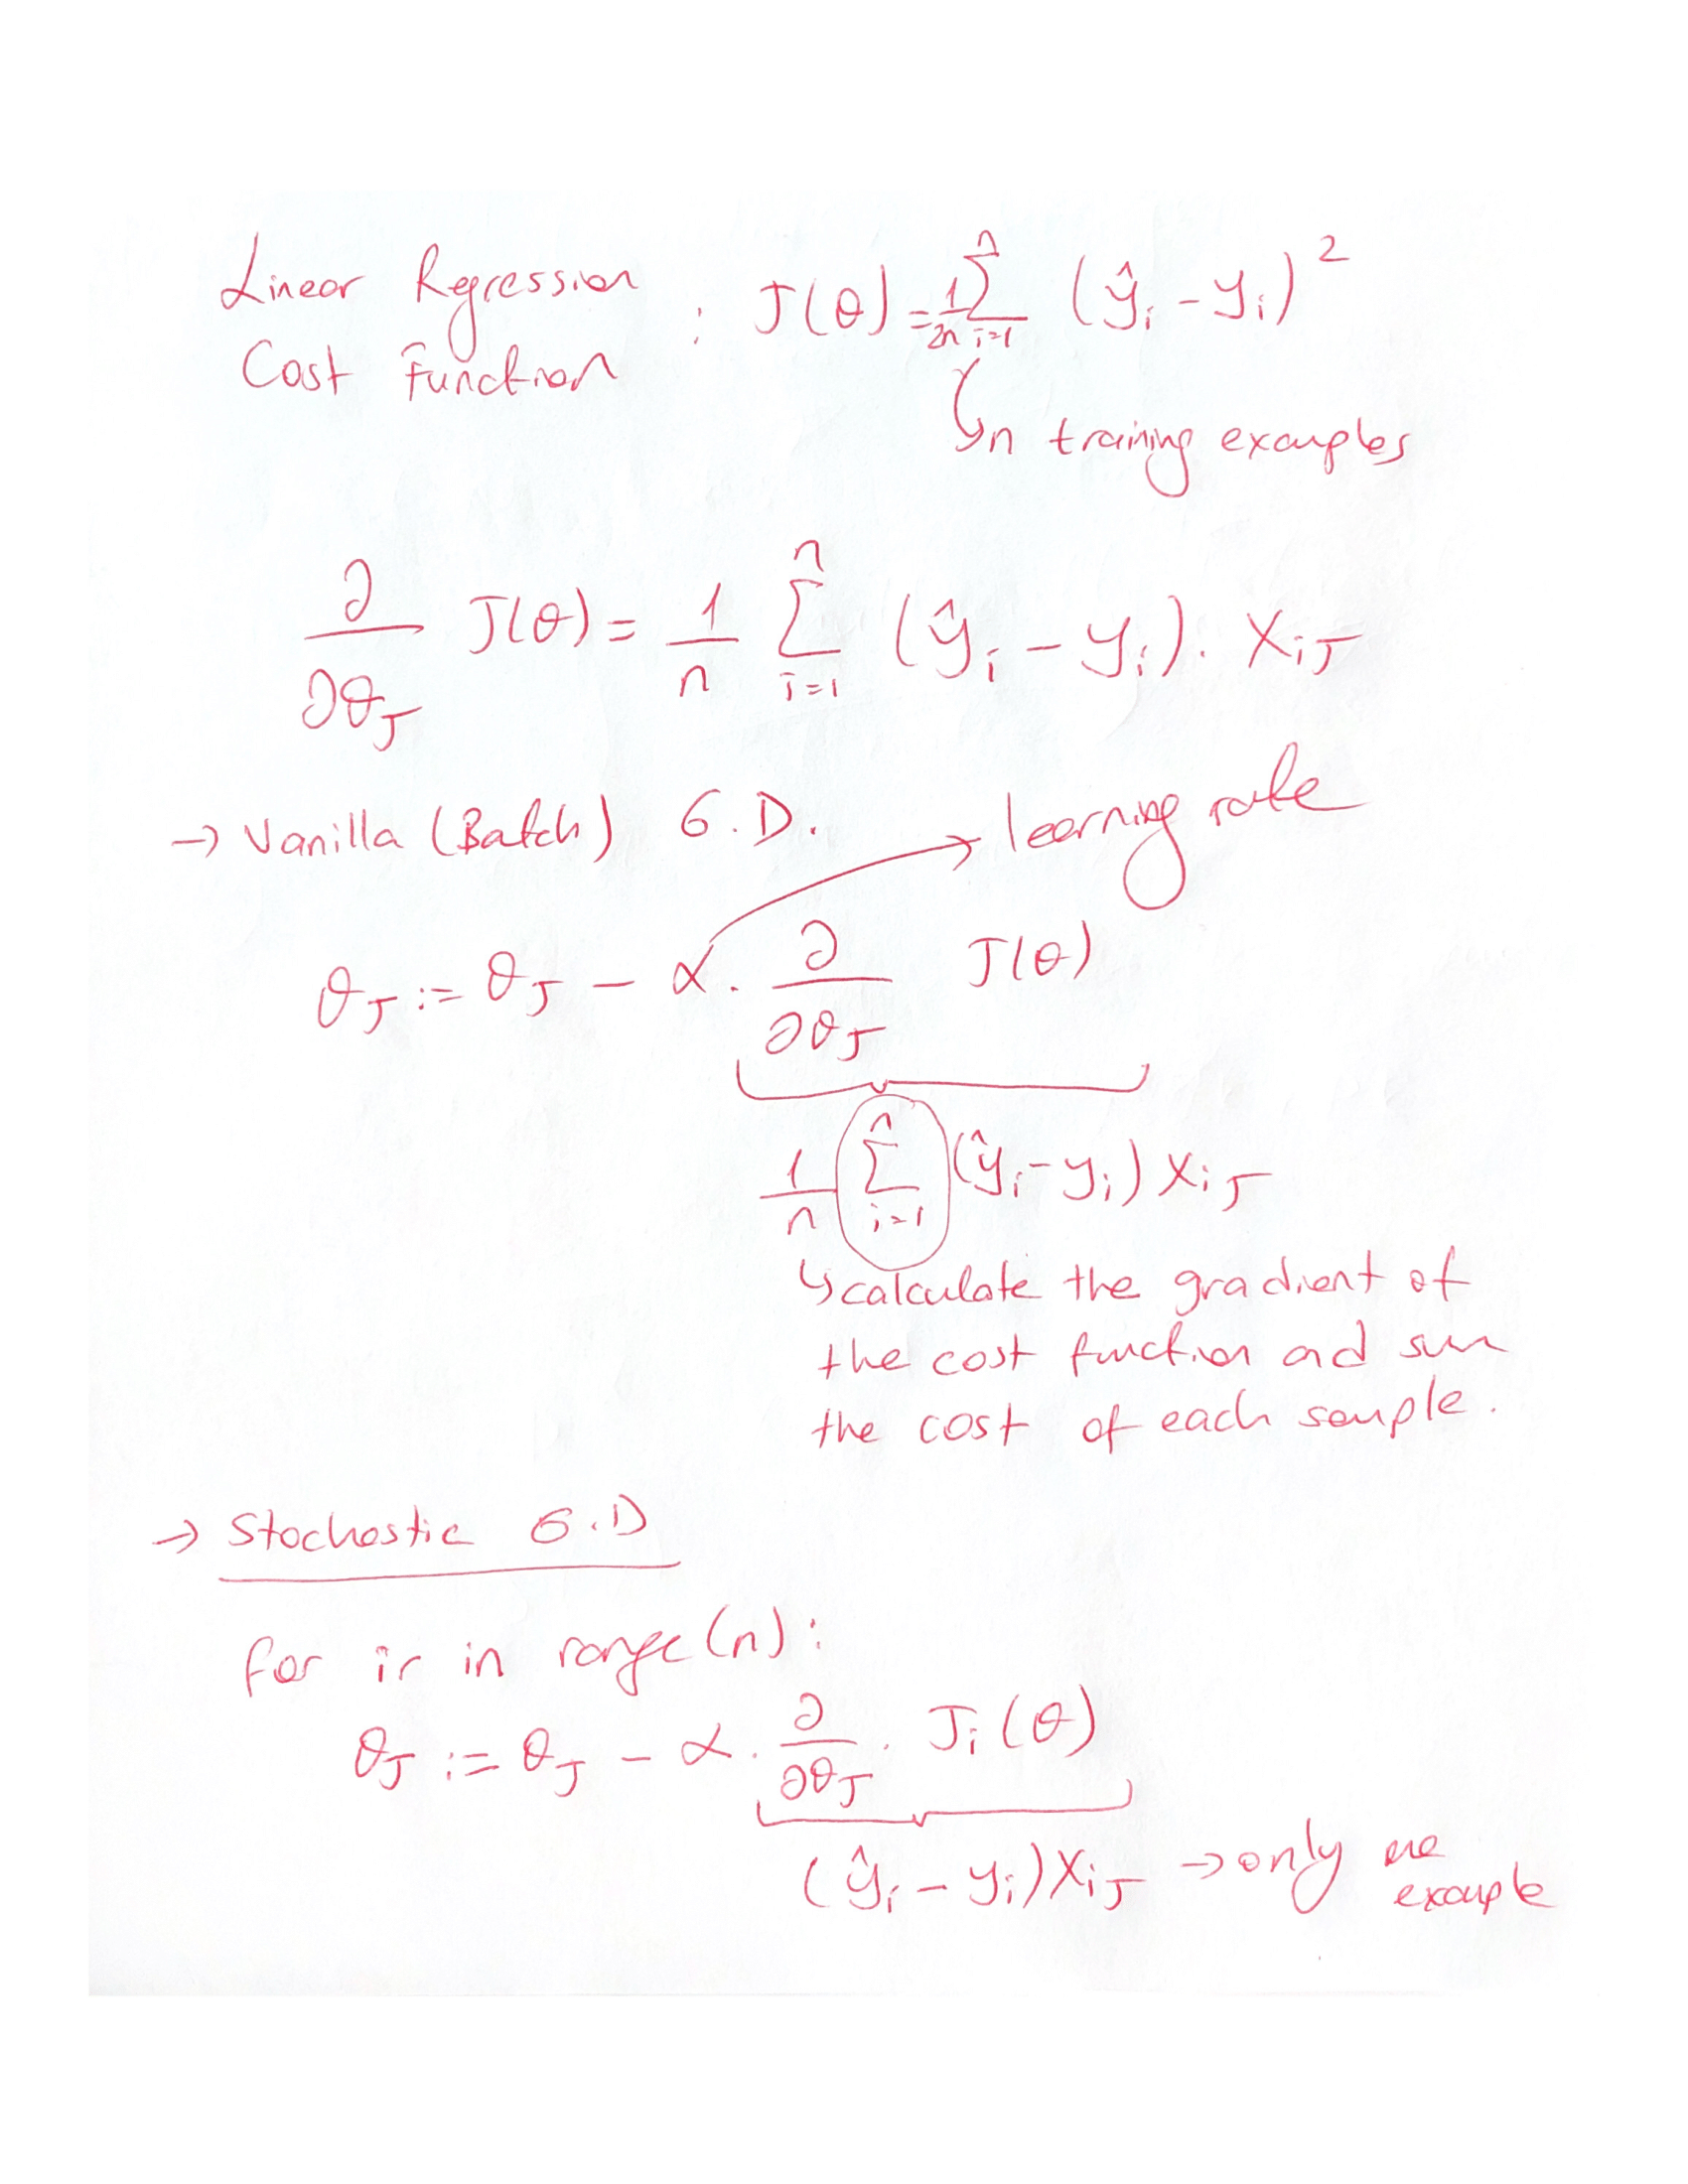 Linear Regression
Cost Function : J(θ) = 1/2n Σ_{i=1}^{n} (ŷ_i - y_i)^2
↳ n training examples
∂/∂θ_J J(θ) = 1/n Σ_{i=1}^{n} (ŷ_i - y_i) . X_{iJ}
→ Vanilla (Batch) G.D.
→ learning rate
θ_J := θ_J - α . ∂/∂θ_J J(θ)
1/n Σ_{i=1}^{n} (ŷ_i - y_i) X_{iJ}
↳ calculate the gradient of
the cost function and sum
the cost of each sample.
→ Stochastic G.D
for ir in range(n):
θ_J := θ_J - α . ∂/∂θ_J . J_i(θ)
(ŷ_i - y_i) X_{iJ} → only one
example